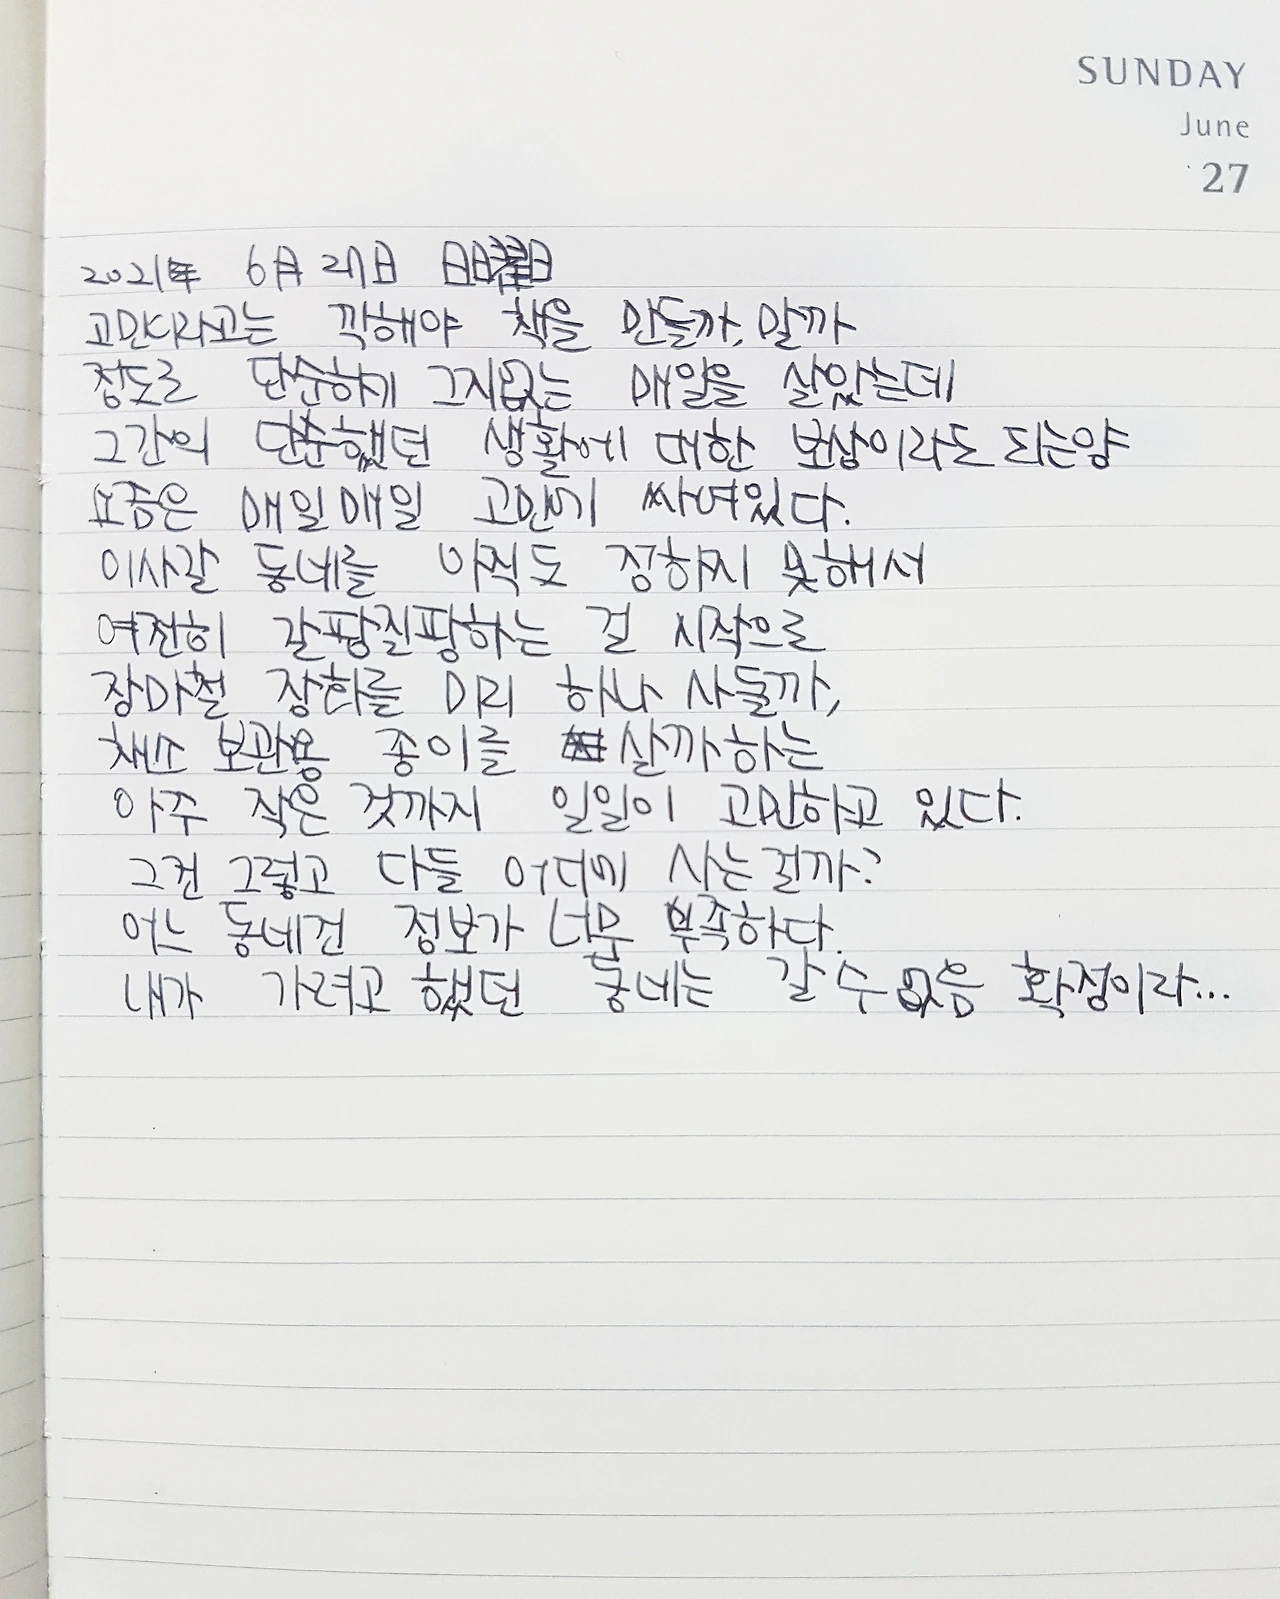 SUNDAY
June
27
2021年 6月 27日 日曜日
고민이라고는 깍해야 책을 만들까, 말까
정도로 단순하기 그지없는 매일을 살았는데
그간의 단순했던 생활에 대한 보상이라도 되는양
요즘은 매일매일 고민에 싸여있다.
이사갈 동네를 아직도 정하지 못해서
여전히 갈팡질팡하는 걸 시작으로
장마철 장화를 미리 하나 사둘까,
채소 보관용 종이를 살까하는
아주 작은 것까지 일일이 고민하고 있다.
그건 그렇고 다들 어디에 사는걸까?
어느 동네건 정보가 너무 부족하다.
내가 가려고 했던 동네는 갈 수 없음 확정이라...